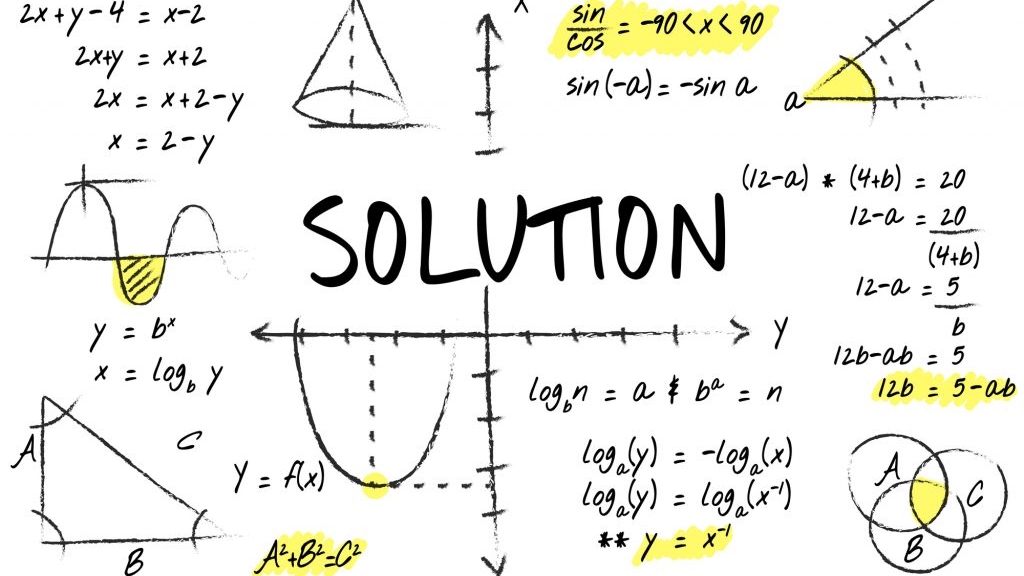 2x+y-4 = x-2
2x+y = x+2
2x = x+2-y
x = 2-y
X
sin
cos = -90<x<90
sin(-a) = -sin a
a
(12-a) * (4+b) = 20
12-a = 20
(4+b)
12-a = 5
b
12b-ab = 5
12b = 5-ab
SOLUTION
y = bˣ
x = log_b y
A
C
B
Y
Y = f(x)
A²+B²=C²
log_b n = a & bᵃ = n
logₐ(y) = -logₐ(x)
logₐ(y) = logₐ(x⁻¹)
** y = x⁻¹
A
C
B